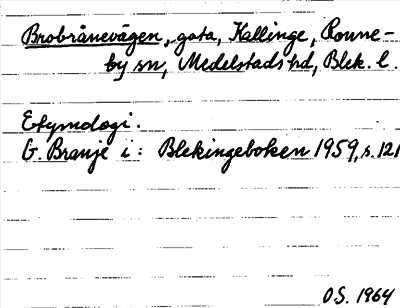 Brobrånevägen, gata, Kallinge, Ronne-
by sn, Medelstads hd, Blek. l.
Etymologi.
G. Branje i: Blekingeboken 1959, s. 121
O.S. 1964